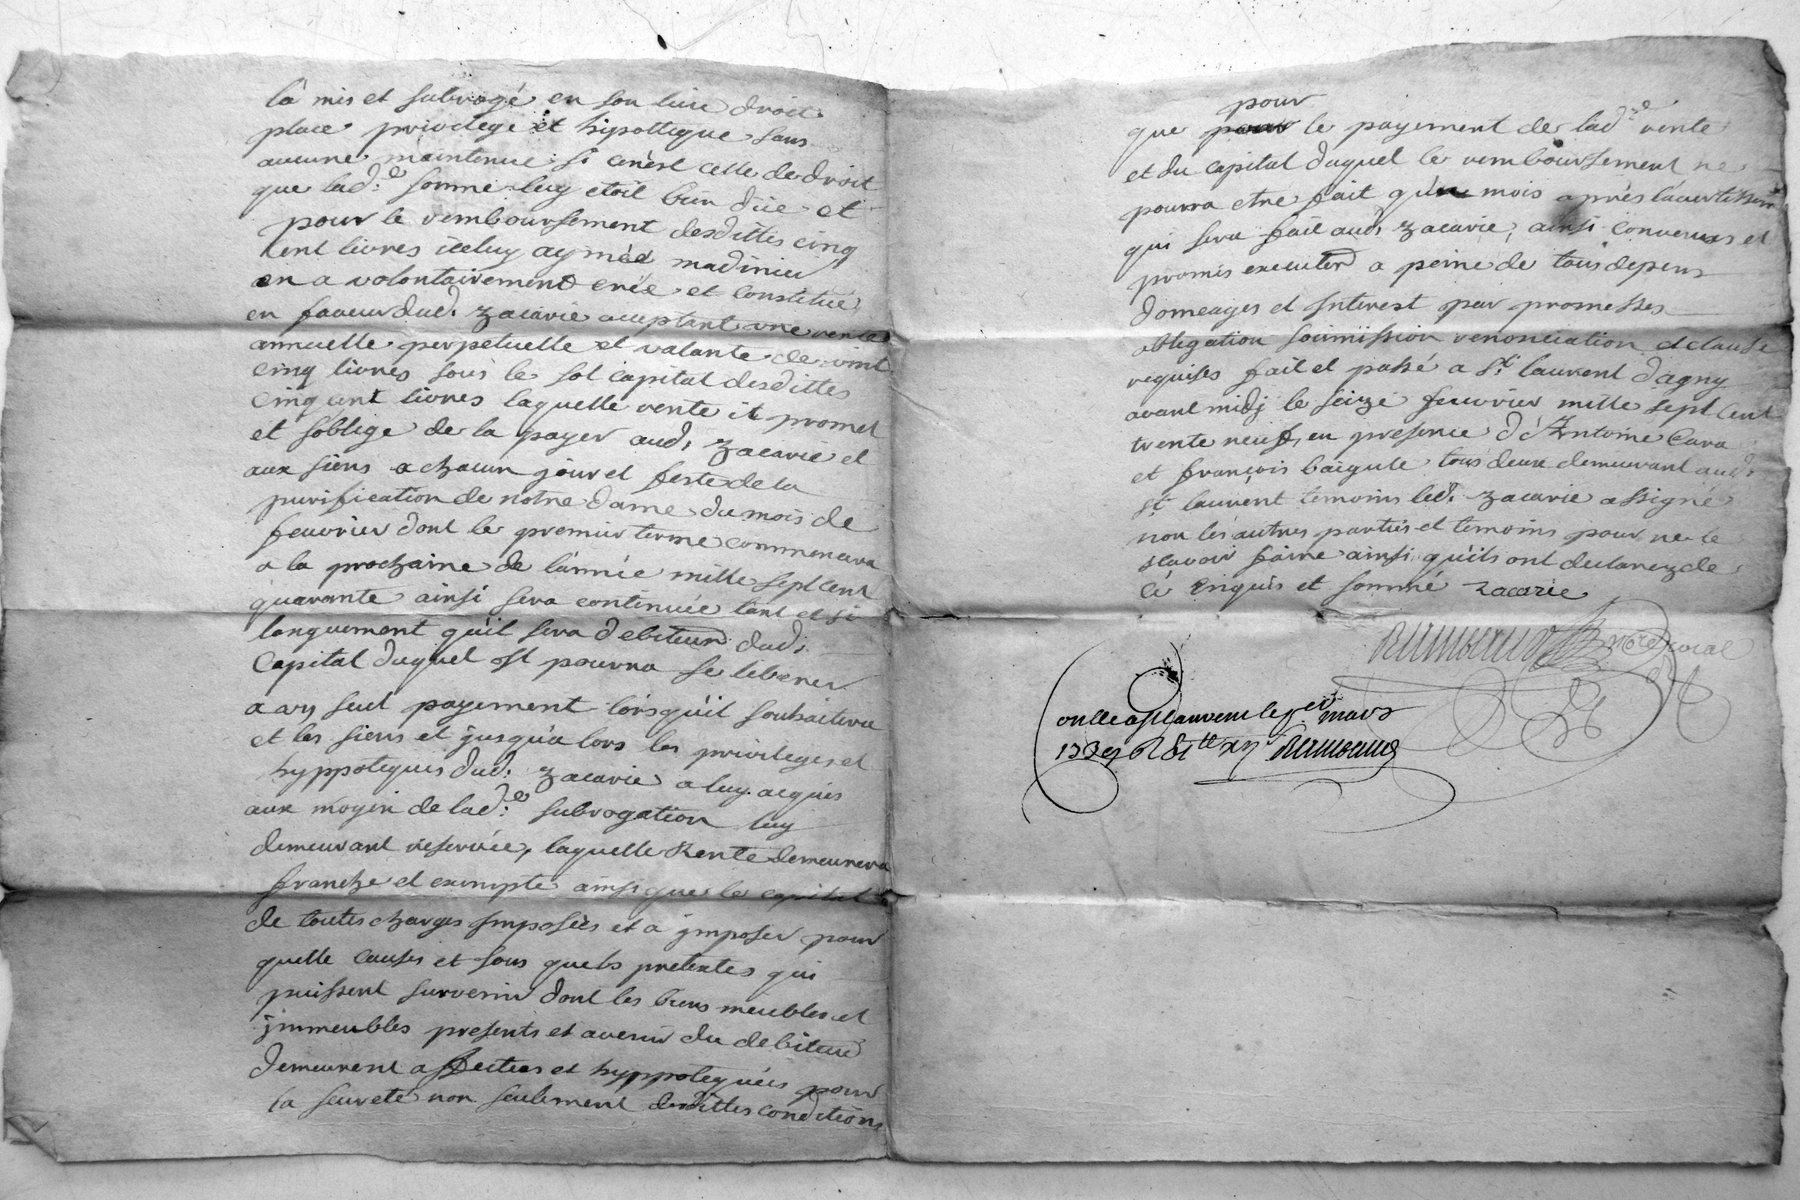 la mis et subrogé en son lieu droit
place privilege et hipotteque sans
aucune maintenue si cenest celle de droit
que lad.e somme luy etoit bien düe et
pour le remboursement desdittes cinq
cent livres iceluy aymée madinier
en a volontairement crée et constitué
en faveur dud. zacarie acceptant une rente
annuelle perpetuelle et valante de vint
cinq livres sous le sol capital desdittes
cinq cent livres laquelle rente il promet
et soblige de la payer aud. zacarie et
aux siens a chacun jour et feste de la
purification de notre dame du mois de
feuvrier dont le premier terme commencera
a la prochaine de lannée mille sept cent
quarante ainsi sera continuée tant et si
longuement quil sera debiteur dud.
Capital duquel il pourra se liberer
a un seul payement lorsquil souhaitera
et les siens et jusqua lors les privileges et
hyppoteques dud. zacarie a luy acquis
aux moyen de lad.e subrogation luy
demeurant reservée, laquelle Rente demeurera
franche et exempte ainsi que le capital
de toutes charges imposées et a jmposer pour
quelle causes et sous quels pretextes qui
puissent survenir dont les biens meubles et
jmmeubles presents et avenir du debiteur
demeurent affectees et hyppotequées pour
la seureté non seulement desdittes conditions
pour
que le payement de lad.e rente
et du capital duquel le remboursement ne
pourra etre fait qun mois après lavertissem
qui sera fait aud. zacarie, ainsi convenus et
promis executer a peine de tous depens
domeages et interest par promesses
obligation soumission renonciation et clause
requises fait et passé a St. laurent dagny
avant midj le seize feuvrier mille sept cent
trente neuf, en presence d'Antoine Cara
et françois baigule tous deux demeurant aud.
St. laurent temoins led. zacarie a signé
non les autres parties et temoins pour ne le
scavoir faire ainsi quils ont declarez de
ce enquis et sommé zacarie
no.re royal
mars